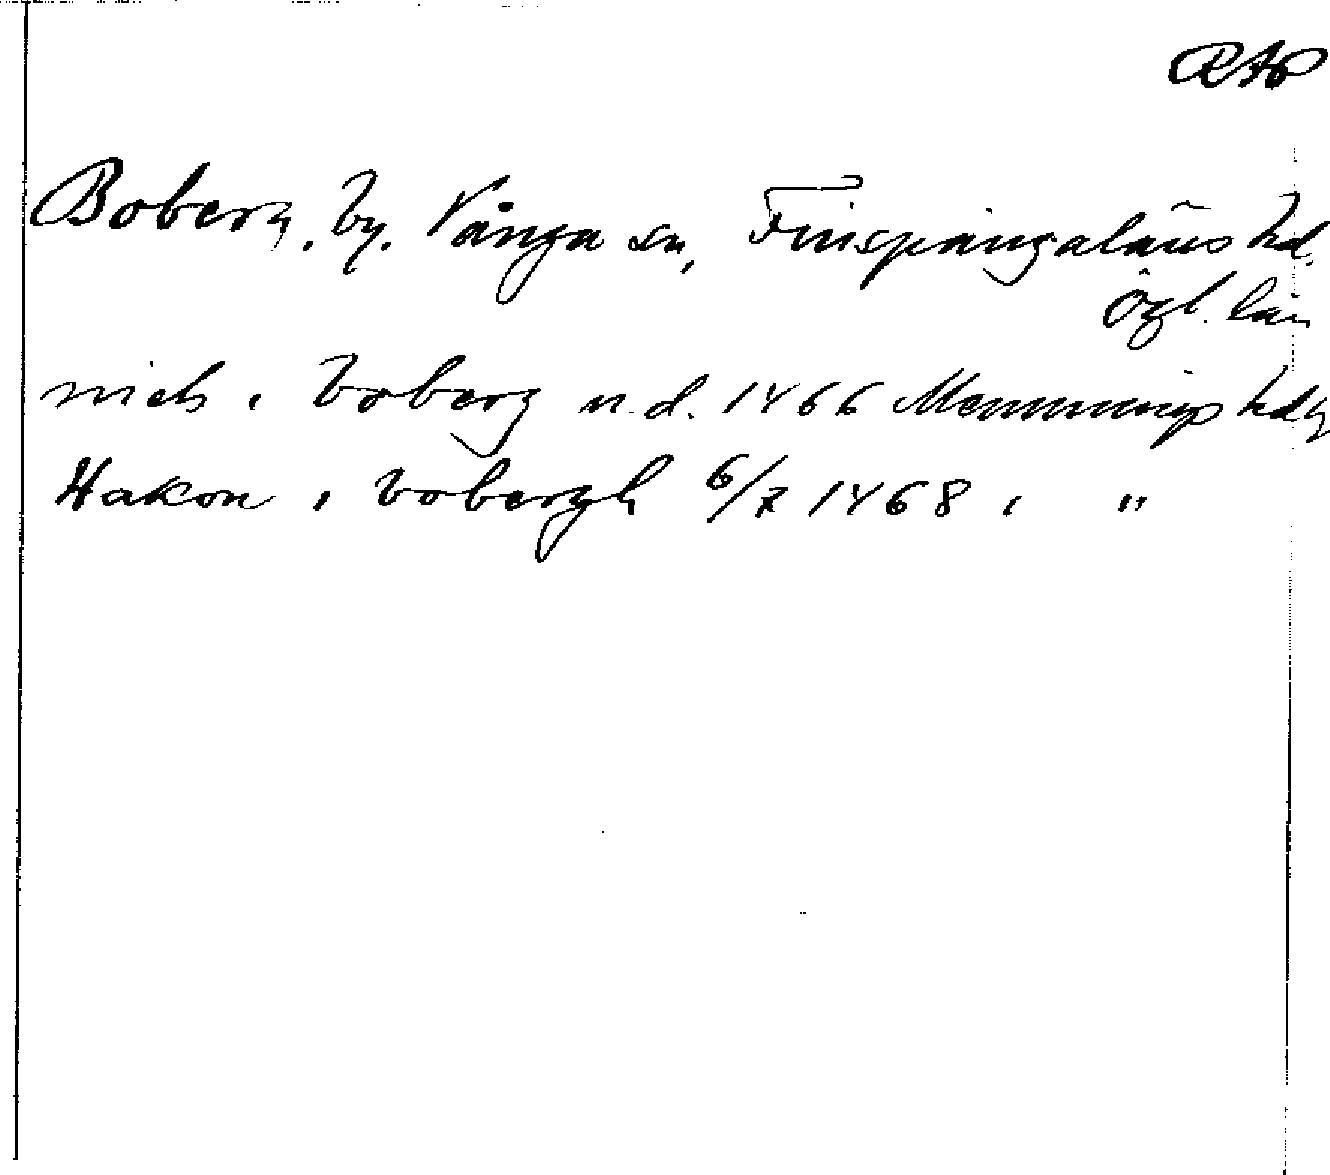 RAP
Boberg, by. Vånga sn, Finspångaläns hd.
Ögl. län
niels i boberg u.d. 1466 Memmings hdl
Hakon i bobergh 6/7 1468 i "